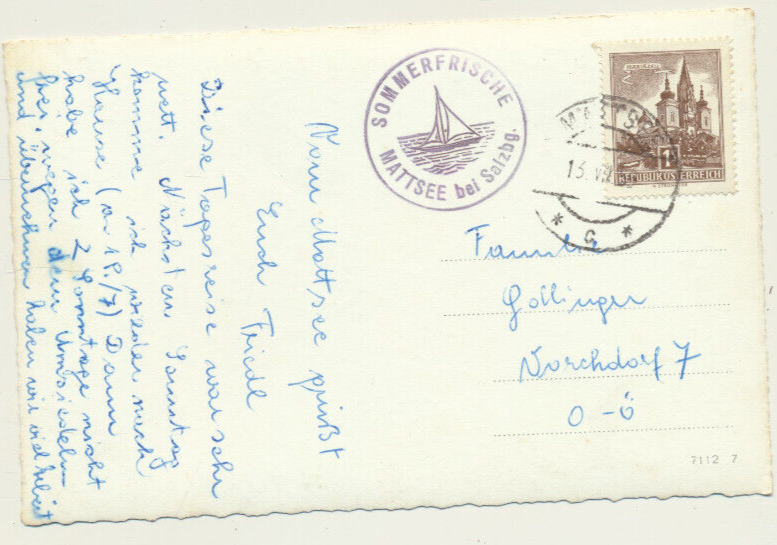 Vom Mattsee grüßt
Euch Friedl
Diese Tagesreise war sehr
nett. Nächsten Sonntag
komme ich wieder nach
Hause (a 18./7) Dann
habe ich 2 Sonntage nicht
frei, wegen dem Umsiedeln
und übernehmen haben wir viel Arbeit
SOMMERFRISCHE
MATTSEE bei Salzbg.
MARIAZELL
1S
REPUBLIK ÖSTERREICH
MATTSEE
13. VII.
* c *
Familie
Gollinger
Vorchdorf 7
O-Ö
7112 7